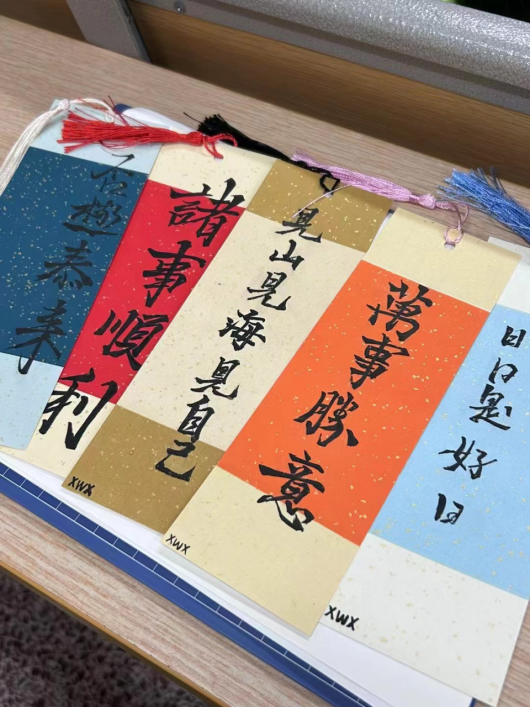 否極泰来
諸事順利
見山見海見自己
XWX
萬事勝意
XWX
日日是好日
XWX